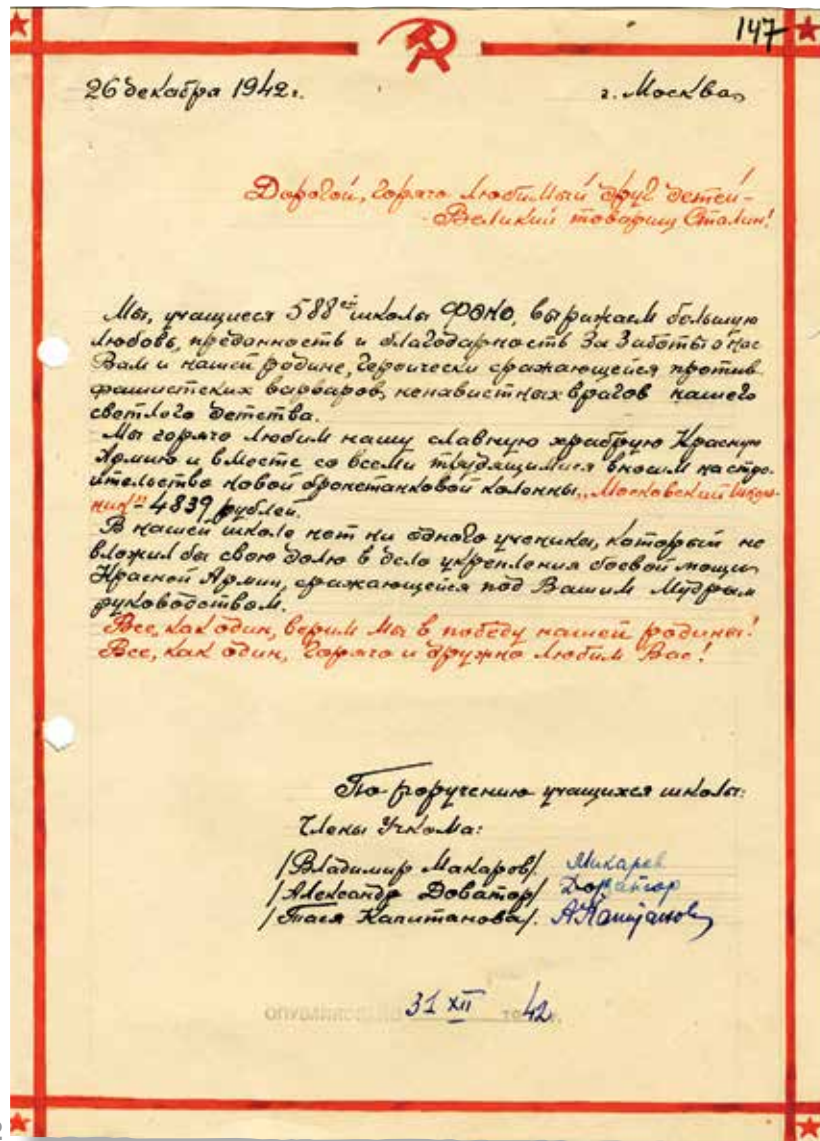 147
26 декабря 1942г. г. Москва
Дорогой, горячо любимый друг детей –
– Великий товарищ Сталин!
Мы, учащиеся 588ой школы ФОНО, выражаем большую
любовь, преданность и благодарность за заботы о нас
Вам и нашей родине, героически сражающейся против
фашистских варваров, ненавистных врагов нашего
светлого детства.
Мы горячо любим нашу славную храбрую Красную
Армию и вместе со всеми трудящимися вносим на стро-
ительство новой бронетанковой колонны „Московский школь-
ник" – 4839 рублей.
В нашей школе нет ни одного ученика, который не
вложил бы свою долю в дело укрепления боевой мощи
Красной Армии, сражающейся под Вашим мудрым
руководством.
Все, как один, верим мы в победу нашей родины!
Все, как один, горячо и дружно любим Вас!
По поручению учащихся школы:
Члены Учкома:
/Владимир Макаров/. Макаров
/Александр Доватор/ Доватор
/Тася Капитанова/.
ОПУБЛИКОВАНО 31 XII 1942 г.